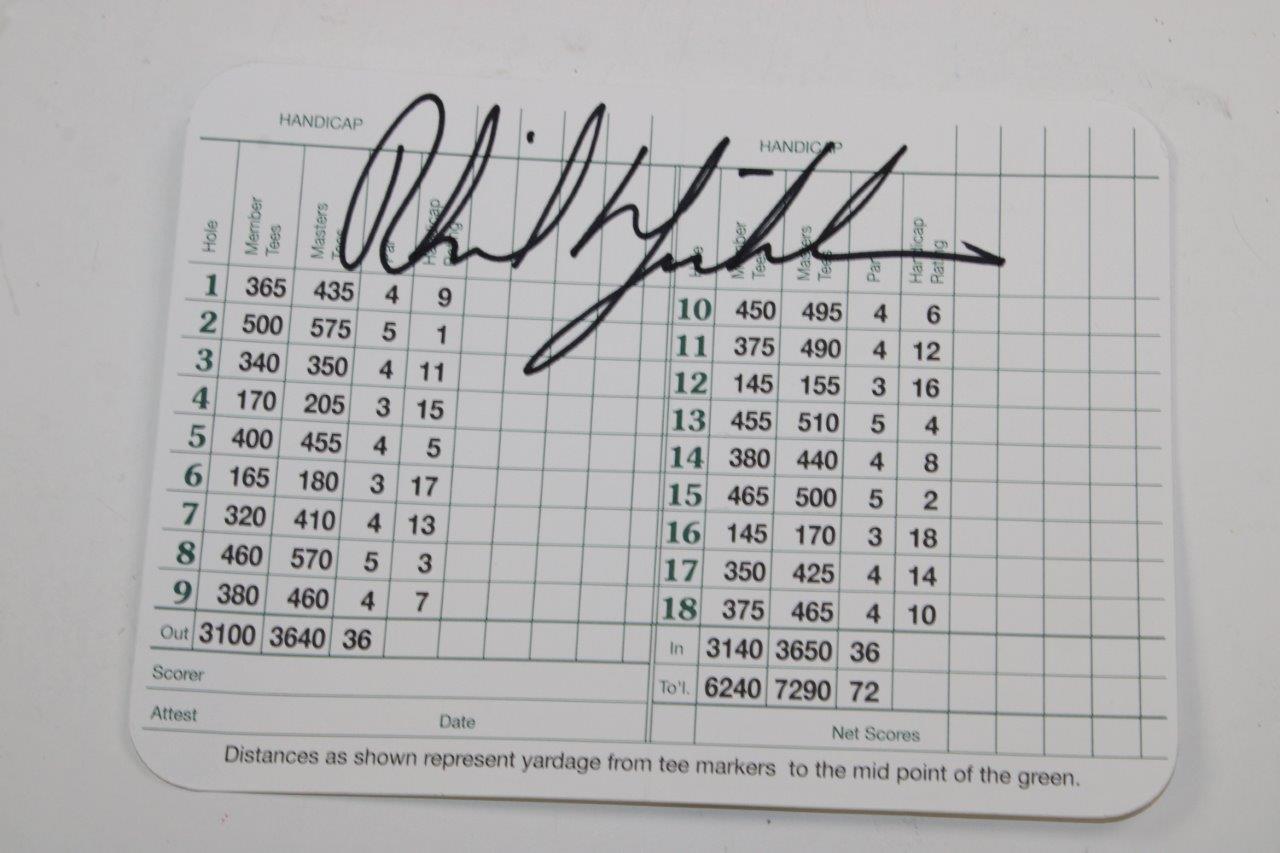 Phil
HANDICAP
Hole Member Tees Masters Tees Par Handicap Rating
1 365 435 4 9
2 500 575 5 1
3 340 350 4 11
4 170 205 3 15
5 400 455 4 5
6 165 180 3 17
7 320 410 4 13
8 460 570 5 3
9 380 460 4 7
Out 3100 3640 36
Scorer
Attest Date
HANDICAP
Hole Member Tees Masters Tees Par Handicap Rating
10 450 495 4 6
11 375 490 4 12
12 145 155 3 16
13 455 510 5 4
14 380 440 4 8
15 465 500 5 2
16 145 170 3 18
17 350 425 4 14
18 375 465 4 10
In 3140 3650 36
To'l. 6240 7290 72
Net Scores
Distances as shown represent yardage from tee markers to the mid point of the green.